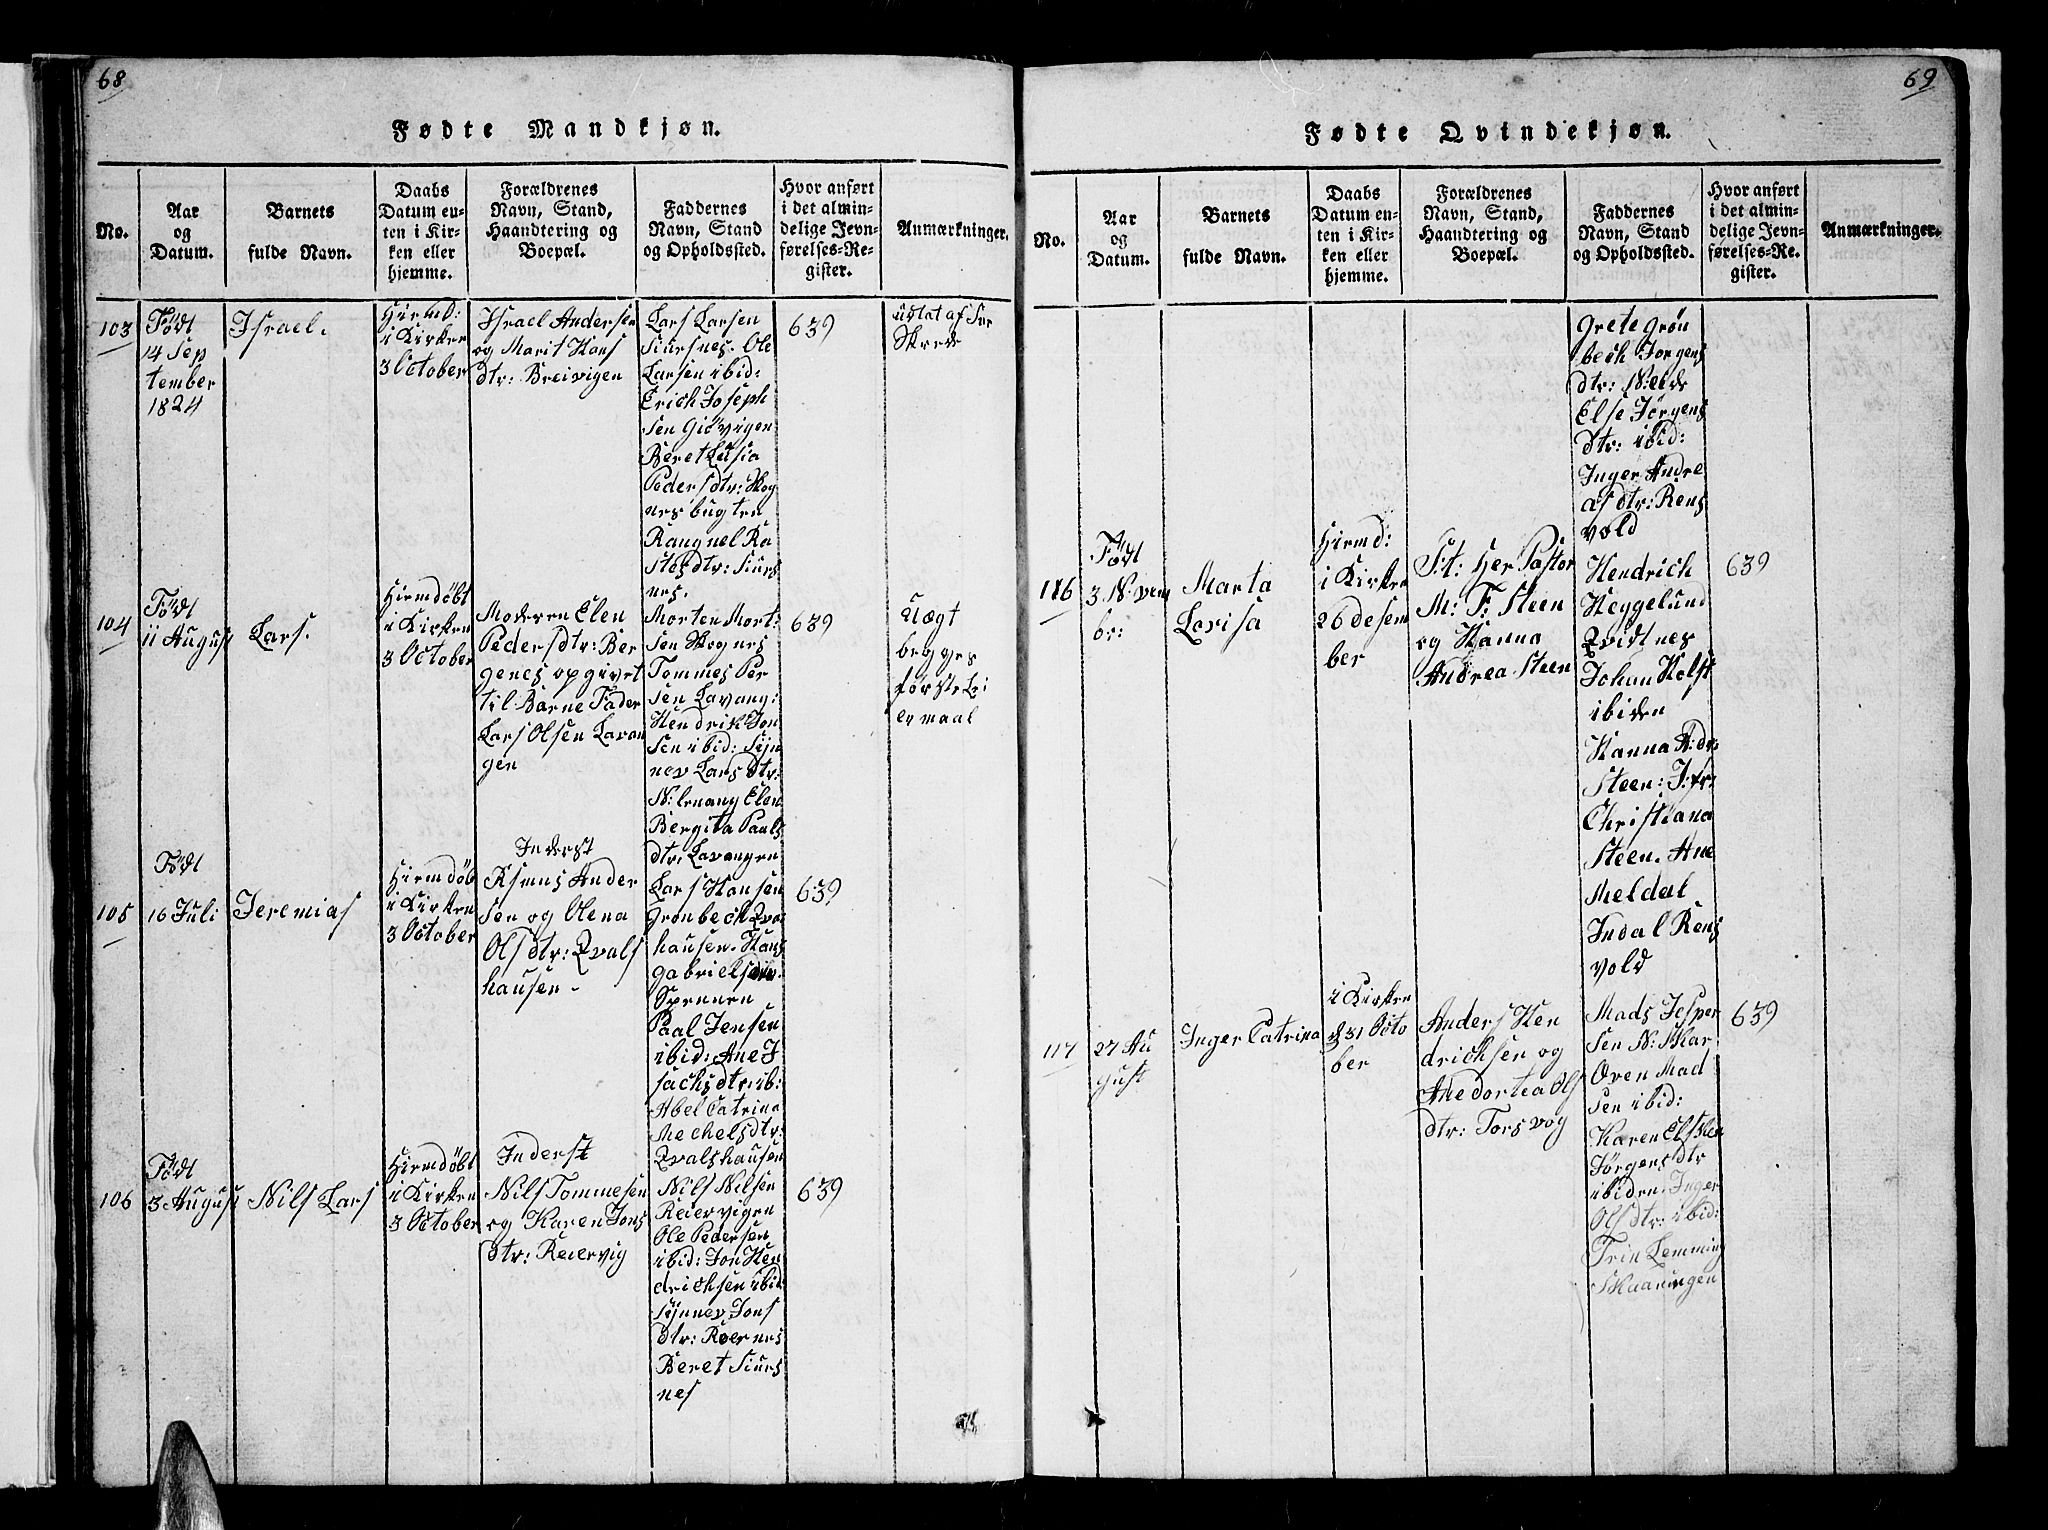 68
Fødte Mandkjøn.
No.
Aar
og
Datum.
Barnets
fulde Navn.
Daabs
Datum en-
ten i Kir-
ken eller
hjemme.
Forældrenes
Navn, Stand,
Haandtering og
Boepæl.
Faddernes
Navn, Stand
og Opholdssted.
Hvor anført
i det almin-
delige Jevn-
førelses-Re-
gister.
Anmærkninger.
103
Født
14 Sep
tember
1824
Israel.
Hiemd:
i Kirken
3 October
Israel Andersen
og Marit Hans
dtr: Breivigen
Lars Larsen
Siursnes. Ole
Larsen ibid:
Erich Joseph
sen Giövigen
Beret Lusia
Pedersdtr: Skog
nesbugten
Rangnel Ra
stesdtr: Siurs
nes.
639
udlat af For
Skrede
104
Født
11 August
Lars.
Hiemdöbt
i Kirken
3 October
Moderen Elen
Pedersdtr: Ber
genes opgivet
til Barne Fader
Lars Olsen Lavan
gen
Morten Mort:
sen Skognes
Tommes Per
sen Lavang:
Hendrik Jon
sen ibid: Sijn
nev Lars dtr:
N: lenang Elen
Bergita Pauls
dtr: Lavangen
639
Uægt
begges
første Lei
ermaal
105
Født
16 Juli
Jeremias
Hiemdöb
i Kirken
3 October
Inderst
Rsmus Ander
sen og Olena
Olsdtr: Qvals
hausen -
Lars Hansen
Grönbeck Qval
hausen. Hans
gabrielsen
Spennen
Paal Jensen
ibid: Ane I
sachsdtr: ib:
Abel Catrina
Mechelsdtr:
Qvalshausen
639
106
Født
3 August
Nils Lars
Hiemdöbt
i Kirken
3 October
Inderst
Nils Tommesen
og Karen Jons
dtr: Reiervig
Nils Nilsen
Reiervigen
Ole Pedersen
ibid: Jon Hen
drichsen ibid
Sÿnnev Jons
dtr: Roernes
Beret Siurs
nes
639
69
Fødte Qvindekjøn.
No.
Aar
og
Datum.
Barnets
fulde Navn.
Daabs
Datum en-
ten i Kir-
ken eller
hjemme.
Forældrenes
Navn, Stand,
Haandtering og
Boepæl.
Faddernes
Navn, Stand
og Opholdssted.
Hvor anført
i det almin-
delige Jevn-
førelses-Re-
gister.
Anmærkninger.
Grete Grön
bech Jörgens
dtr: N: eide
Else Jörgens
dtr: ibid:
Inger Andre
as dtr: Rens
vold
116
Født
3 N: vem
br:
Marta
Lovisa
Hiemd:
i Kirken
26 desem
ber
S: t: Her Pastor
M: F: Steen
og Hanna
Andrea Steen
Hendrich
Heggelund
Qvidtnes
Johan Holst
ibiden
Hanna A: dr:
Steen: J: fr:
Christiana
Steen. Ane
Meldal
Indal Rens
vold
639
117
27 Au
gust
Inger Catrina
i Kirken
d 31 Octo
ber
Anders Hen
drichsen og
Ane dortea Ols
dtr: Torsvog
Mads Jesper
sen N: Skar
Oven Mad
sen ibid:
Karen Elsker
Jörgensdtr
ibiden. Inger
Olsdtr: ibid:
Trin Lemming
Skaaningen
639